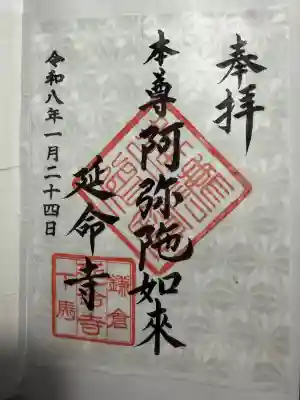 奉拝
本尊阿弥陀如來
延命寺
令和八年一月二十四日
鎌倉
延命寺
下馬